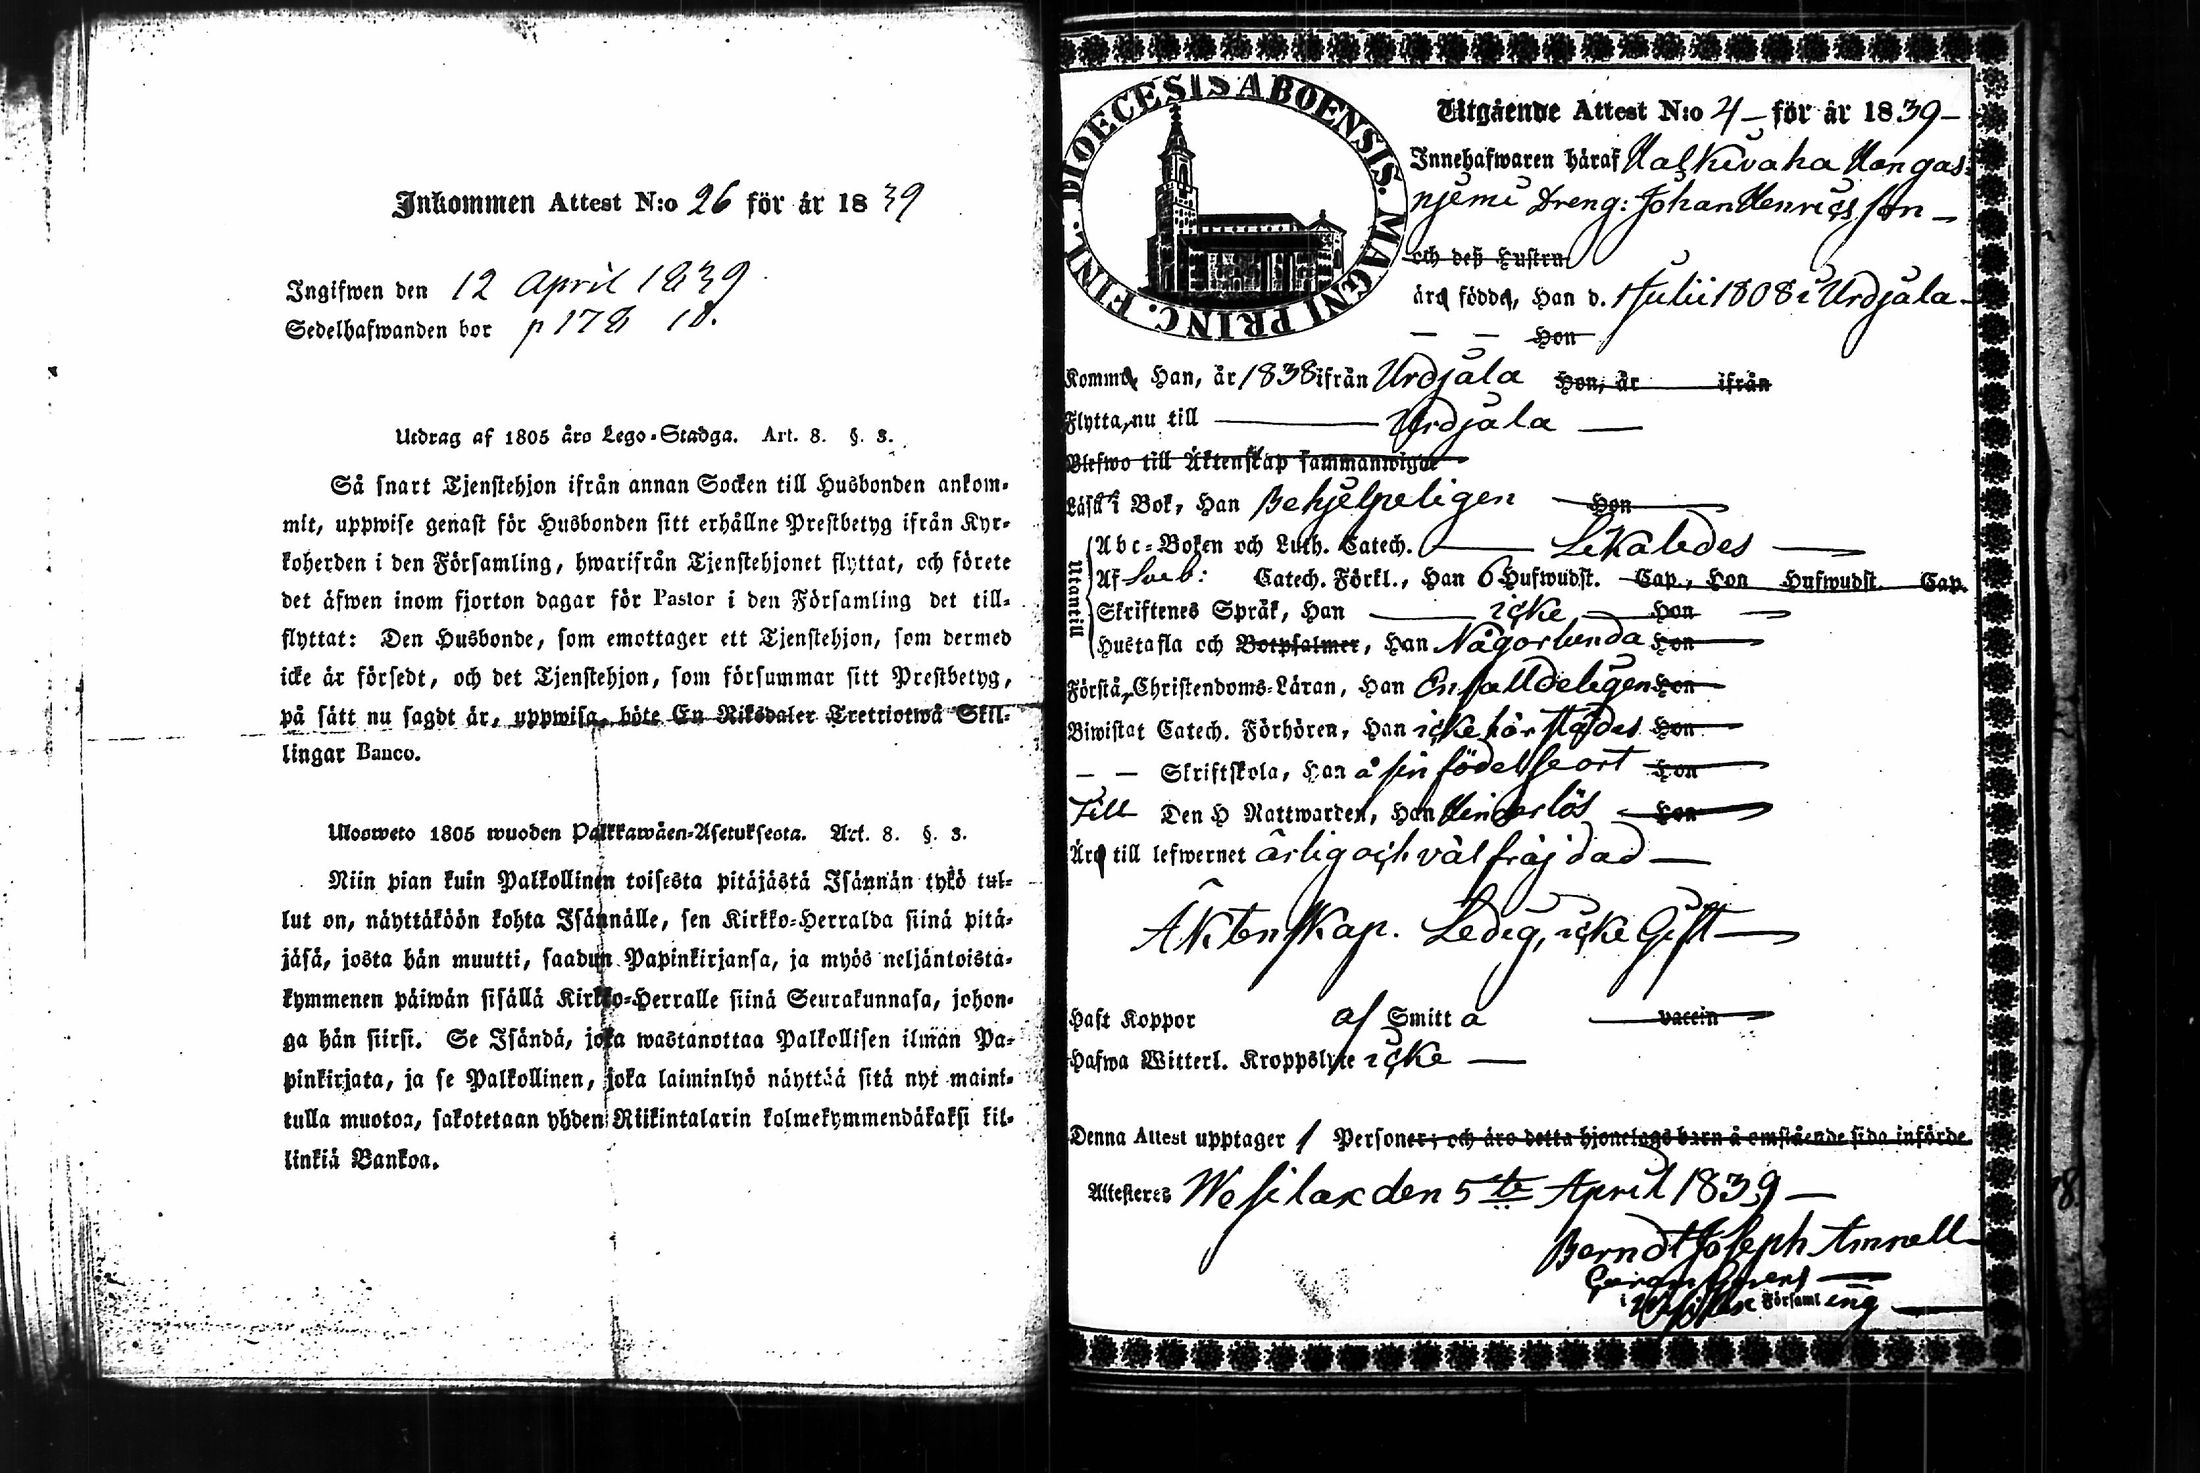 Inkommen Attest N:o 26 för år 1839
Ingifwen den 12 April 1839.
Sedelhafwanden bor p 178 10.
Utdrag af 1805 års Lego-Stadga. Art. 8. §. 3.
Så snart Tjenstehjon ifrån annan Socken till Husbonden ankom-
mit, uppwise genast för Husbonden sitt erhållne Prestbetyg ifrån Kyr-
koherden i den Församling, hwarifrån Tjenstehjonet flyttat, och förete
det äfwen inom fjorton dagar för Pastor i den Församling det till-
flyttat: Den Husbonde, som emottager ett Tjenstehjon, som dermed
icke är försedt, och det Tjenstehjon, som försummar sitt Prestbetyg,
på sätt nu sagdt är, uppwisa, böte En Riksdaler Trettiotwå Skil-
lingar Banco.
Ulosweto 1805 wuoden Palkkawäen-Asetuksesta. Art. 8. §. 3.
Niin pian kuin Palkollinen toisesta pitäjästä Isännän tykö tul-
lut on, näyttäköön kohta Isännälle, sen Kirkko-Herralda siinä pitä-
jäsä, josta hän muutti, saadun Papinkirjansa, ja myös neljäntoista-
kymmenen päiwän sisällä Kirkko-Herralle siinä Seurakunnasa, johon-
ga hän siirsi. Se Isändä, joka wastanottaa Palkollisen ilman Pa-
pinkirjata, ja se Palkollinen, joka laiminlyö näyttää sitä nyt maini-
tulla muotoa, sakotetaan yhden Riikintalarin kolmekymmendäkaksi kil-
linkiä Bankoa.
DIOECESIS ABOENSIS. MAGNI PRINC. FINL.
Utgående Attest N:o 4 – för år 1839 –
Innehafwaren häraf Halkivaha Hangas-
njemi Dreng: Johan Henricsson –
och deß Hustru
äro födde, Han d. 1 Julii 1808 i Urdjala –
– – Hon
Komme Han, år 1838 ifrån Urdjala Hon, år ifrån
Flytta, nu till Urdjala –
Blefwo till Äktenskap sammanwigde
Läsa i Bok, Han Behjelpeligen Hon
Utantill
Abc-Boken och Luth. Catech. Likaledes
Af Sveb: Catech. Förkl., Han 6 Hufwudst. Cap., Hon Hufwudst. Cap.
Skriftenes Språk, Han icke Hon
Hustafla och Botpsalmer, Han Någorlunda Hon
Förstå, Christendoms-Läran, Han Enfalldeligen Hon
Biwistat Catech. Förhören, Han icke härstädes Hon
– – Skriftskola, Han å sin födelseort Hon
Till Den H Nattwarden, Han Hinderlös Hon
Äro till lefwernet ärlig och väl fräjdad –
Äktenskap. Ledig, icke Gift –
Haft Koppor af Smitta vaccin
Hafwa Witterl. Kroppslyte icke –
Denna Attest upptager 1 Personer; och äro detta hjonelags barn å omstående sida införde.
Attesteras Wesilax den 5te April 1839 –
Berndt Joseph Amnell
i Wesilax Församling